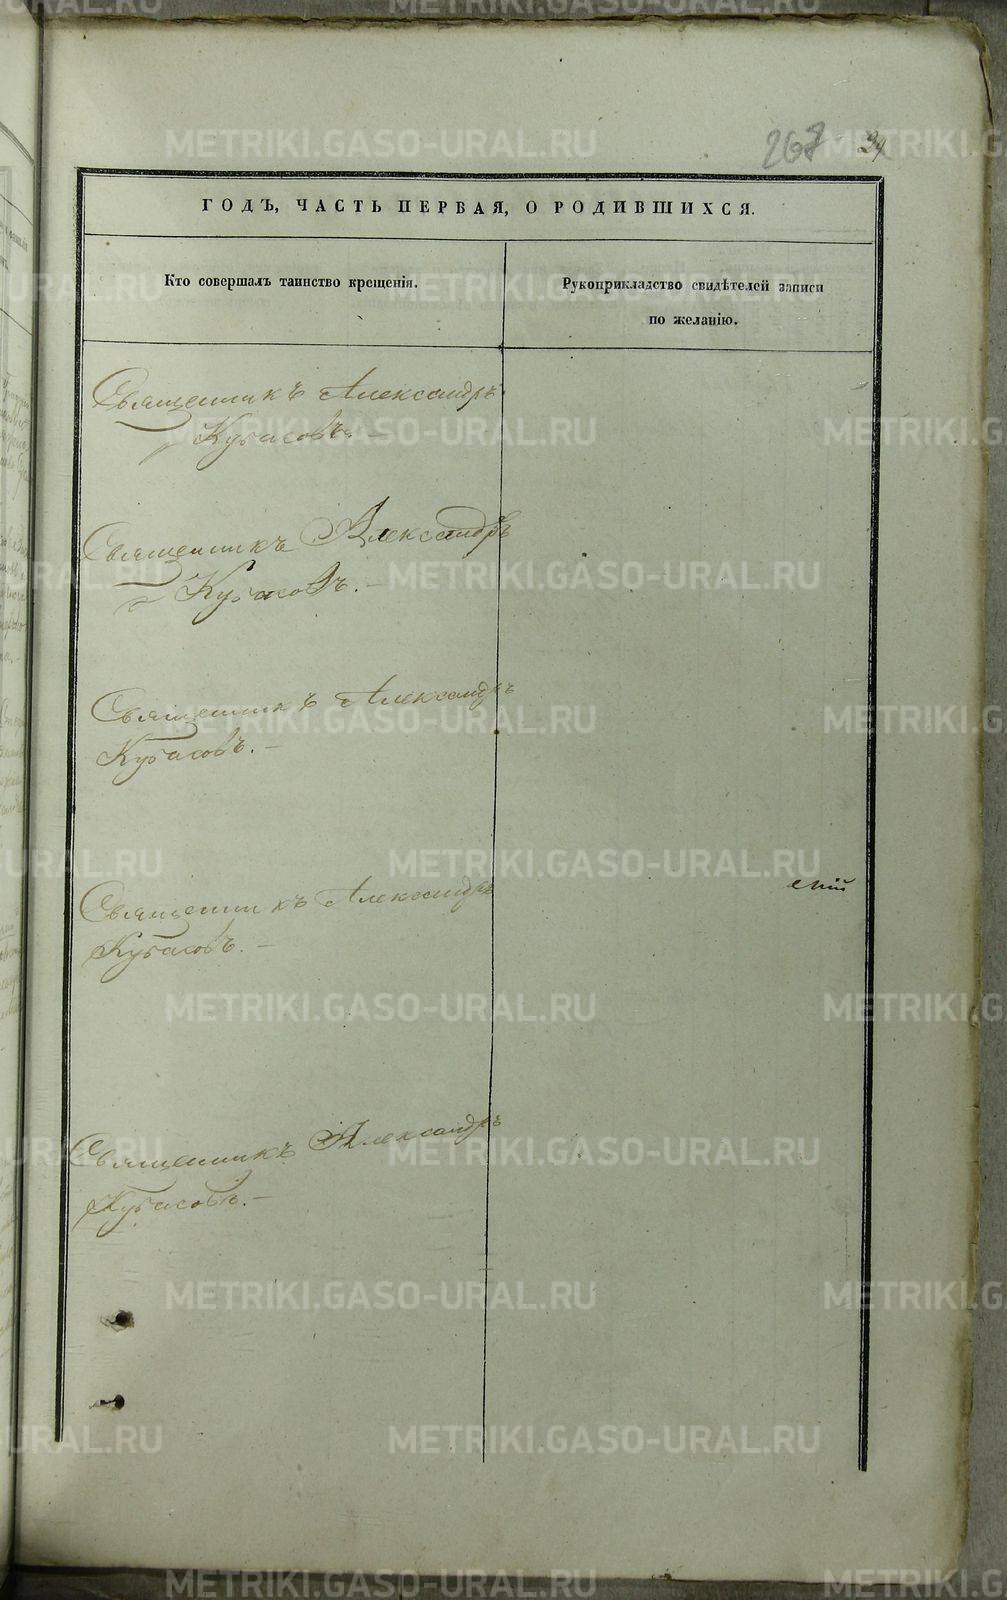 267 34
ГОДЪ, ЧАСТЬ ПЕРВАЯ, О РОДИВШИХСЯ.
Кто совершалъ таинство крещенія.
Рукоприкладство свидѣтелей записи
по желанію.
Священникъ Александръ
Кубасовъ. —
Священникъ Александръ
Кубасовъ. —
Священникъ Александръ
Кубасовъ. —
Священникъ Александръ
Кубасовъ. —
Священникъ Александръ
Кубасовъ. —
METRIKI.GASO-URAL.RU